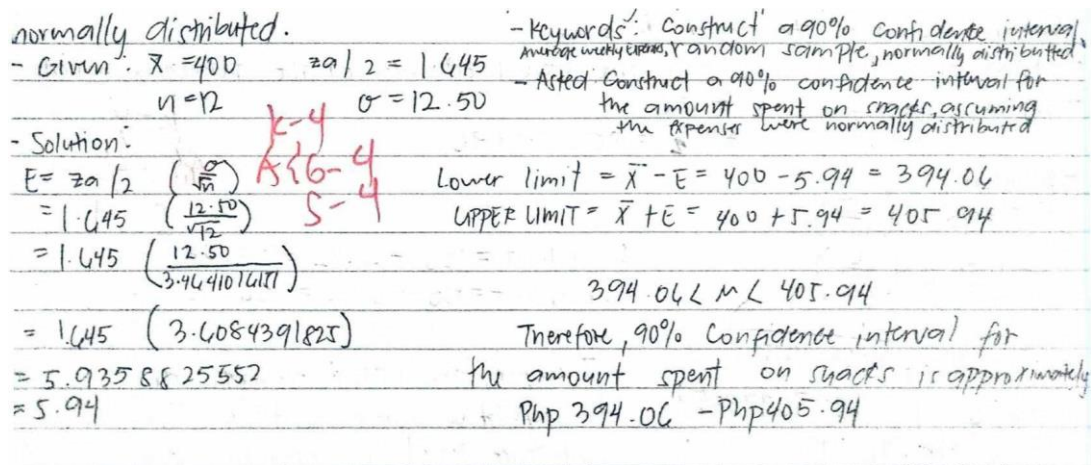 normally distributed.
- Given: x̄ = 400 za/2 = 1.645
n = 12 σ = 12.50
- Solution:
E = za/2 (σ/√n)
= 1.645 (12.50/√12)
= 1.645 (12.50/3.464101615)
= 1.645 (3.6084391825)
= 5.9358825552
= 5.94
K-4
A{G-4
S-4
- Keywords: Construct a 90% confidence interval,
Average weekly expenses, random sample, normally distributed.
- Asked: Construct a 90% confidence interval for
the amount spent on snacks, assuming
the expenses were normally distributed
Lower limit = x̄ - E = 400 - 5.94 = 394.06
UPPER LIMIT = x̄ + E = 400 + 5.94 = 405.94
394.06 < M < 405.94
Therefore, 90% Confidence interval for
the amount spent on snacks is approximately
Php 394.06 - Php 405.94